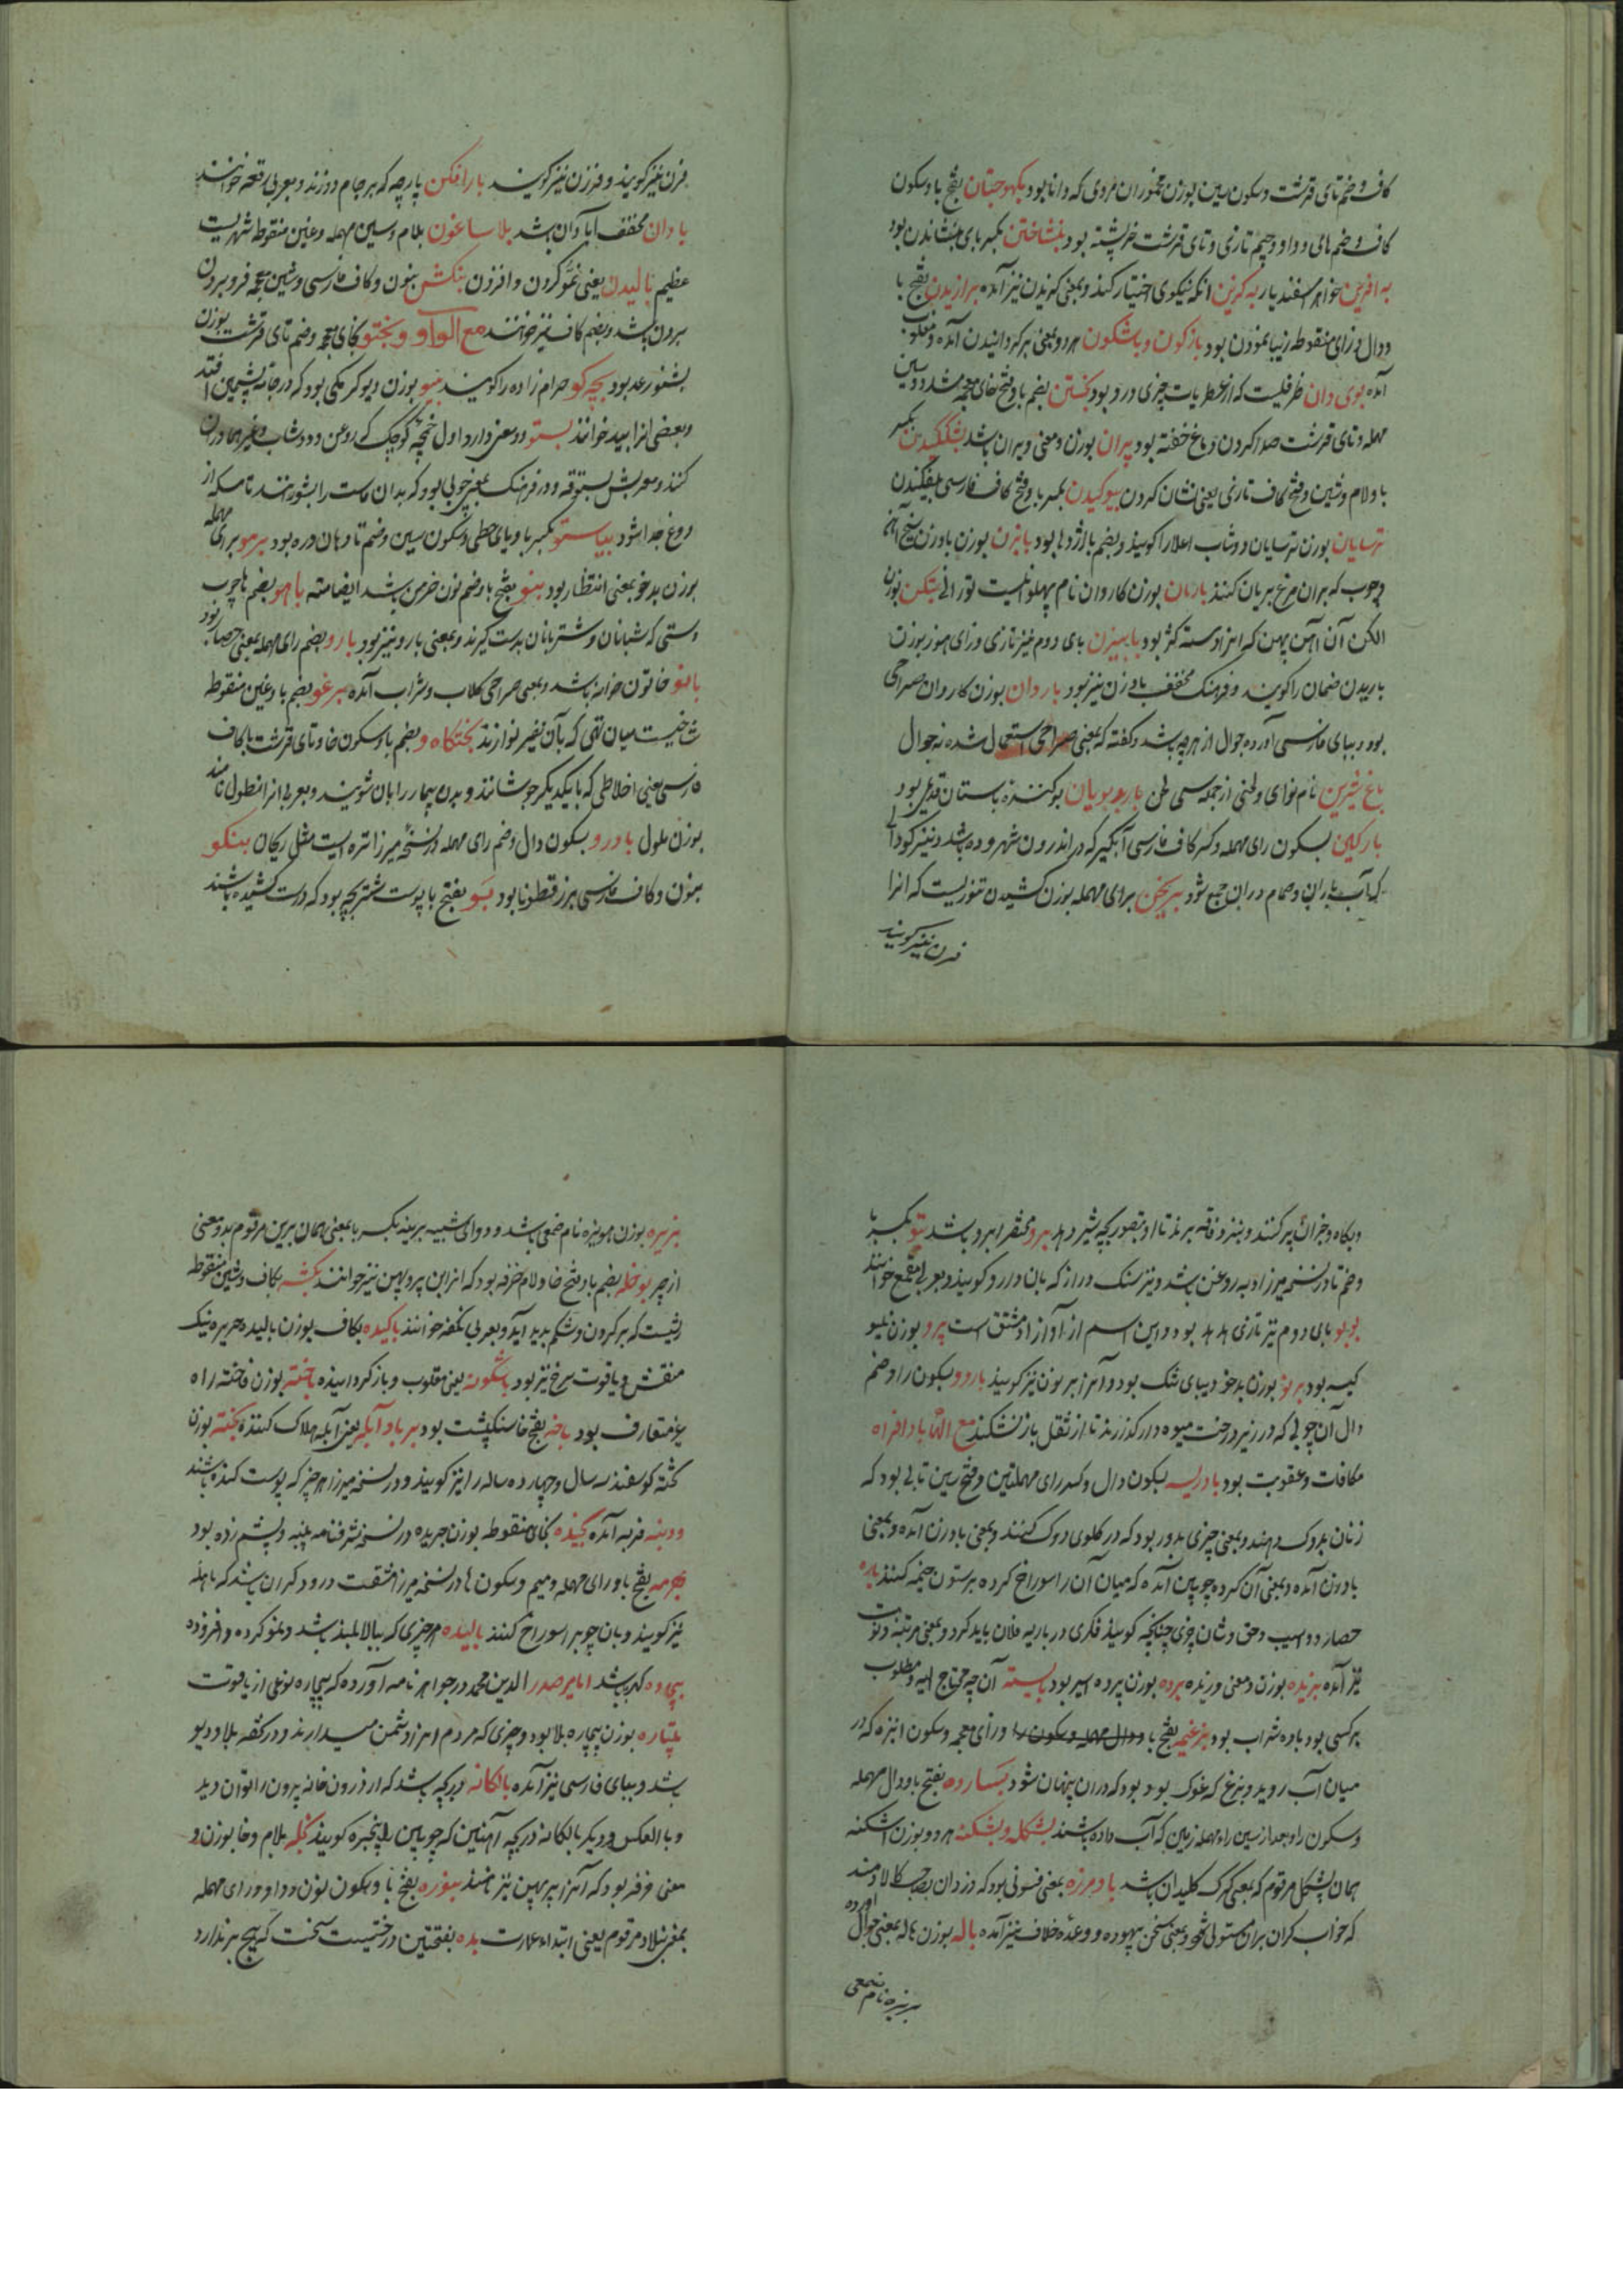 کاف و ضم تای قرشت و سکون سین بوزن مخموران مردی که دانا بود بکهوجتان بفتح با و سکون
کاف و ضم های و واو و جیم تازی و تای قرشت خرپشته بود بنشاختن بکسر بای بنشاندن بود
به آفرین خواهر اسفندیار به گزین آنکه نیکوی اختیار کند و بمعنی گزیدن نیز آمده برازیدن بفتح با
و دال و زای منقوطه زیبا نمودن بود بازگون و باشگون هر دو بمعنی برگردانیدن آمده و مقلوب
آمده بوی دان ظرفیست که از عطریات چیزی درو بود بخستن بضم با و فتح خای معجمه مشدد و سین
مهمله و تای قرشت صدا کردن دماغ خفته بود بیران بوزن و معنی ویران باشد بشلکیدن بکسر
با و لام و شین و فتح کاف تازی یعنی نشان کردن بیوکیدن بکسر با و فتح کاف فارسی بیفکندن
ترسایان بوزن ترسایان دوشاب اعلا را گویند و بضم با اژدها بود بابزن بوزن بادزن سیخ آهن
و چوب که بران مرغ بریان کنند بارمان بوزن کاروان نام پهلوانیست تورانی بتکن بوزن
الکن آن آهن پهن که
باریدن ضمان را گویند و فرهنگ مخفف بادزن نیز بود باردان بوزن کاروان صراحی
بود و ببای فارسی آورده جوال از هرچه باشد و گفته که بمعنی صراحی استعمال شده نه جوال
باغ شیرین نام نوای و لحنی از جمله سی لحن باربد بویان بوکننده باستان قدیمی بود
بارگین بسکون رای مهمله و کسر کاف فارسی آبگیر که در اندرون شهر و ده باشد و نیز گودال
که آب باران و حمام در آن جمع شود بریجن برای مهمله بوزن کشیدن تنوریست که آنرا
فرن نیز گویند
فرن نیز گویند و فرزن نیز گویند بارافکن پارچه که بر جامه دوزند و بعربی رقعه خوانند
بادان مخفف آبادان باشد بلاساغون بلام و سین مهمله و غین منقوطه شهریست
عظیم بالیدن یعنی نمو کردن و افزدن بنکش بنون و کاف فارسی و شین معجمه فرو بردن
بردن باشد و بضم کاف نیز خوانند مع الواو و بختو بخای معجمه و ضم تای قرشت بوزن
بشنو رعد بود بچه کو حرام زاده را گویند بیو بوزن دیو کرمکی بود که در جامه پشمین افتد
و بعضی آنرا بید خوانند بستو دو معنی دارد اول خمچه کوچک که روغن و دوشاب و غیرها در آن
کنند و معربش بستوقه و در فرهنگ بمعنی چوبی بود که بدان ماست را بشورانند تا مسکه از
دوغ جدا شود بیاستو بکسر با و یای حطی و سکون سین و ضم تا دهان دره بود برمو برای مهمله
بوزن بدخو بمعنی انتظار بود بنو بفتح با و ضم نون خرمن باشد ایضا منه باهو بضم ها چوب
دستی که شبانان و شتربانان بدست گیرند و بمعنی بازو نیز بود بارو بضم رای مهمله بمعنی حصار بود
بانو خاتون خانه باشد و بمعنی صراحی گلاب و شراب آمده برغو بضم با و غین منقوطه
شاخیست میان تهی که بآن نفیر نوازند بختکاه و بضم با و سکون خا و تای قرشت با کاف
فارسی یعنی اخلاطی که با یکدیگر جوشانند و بدن بیمار را بان شویند و بعربی آنرا نطول نامند
بوزن ملول بادرو بسکون دال و ضم رای مهمله در نسخه میرزا تره ایست مثل ریحان بنکو
بنون و کاف فارسی بزر قطونا بود بو بفتح با پوست شتر بچه بود که درست کشیده باشند
و بکاه و جز آن پر کنند و نیز و فاقه برند تا او تصور بچه شیر دهد برو مختصر ابرو باشد بتو بکسر با
و ضم تا در نسخه میرزا دبه روغن باشد و نیز سنگ دراز که بان دارو کوبند و بعربی مقمع خوانند
بوبو بای دوم نیز تازی هدهد بود و این اسم از آواز او مشتق است برو بوزن
کیسه بود برنو بوزن بدخو دیبای تنک بود و آنرا برنون نیز گویند باردو بسکون را و ضم
دال آن چوبی که در زیر درخت میوه دار گذارند تا از ثقل باز نشکند مع الها بادافراه
مکافات و عقوبت بود بادریسه بسکون دال و کسر رای مهملتین و فتح سین تابی بود که
زنان بدوک دهند و بمعنی چیزی مدور بود که در گلوی دوک کنند و بمعنی بادزن آمده و بمعنی
بادزن آمده و بمعنی آن گرده چوبین آمده که میان آن را سوراخ کرده بر ستون خیمه کنند باره
حصار و اسب و حق و شان چیزی چنانکه گویند فکری در باره فلان باید کرد و بمعنی مرتبه و نوبت
نیز آمده برزیده بوزن و معنی ورزیده برده بوزن پرده اسیر بود بایسته آن چه محتاج الیه و مطلوب
هر کسی بود باده شراب بود بزغیه بفتح با و دال مهمله و سکون را و زای معجمه و سکون آبزه که در
میان آب روید و بزغ که غوک بود بود که در آن پنهان شود بسارده بفتح با و دال مهمله
و سکون را و بعد از سین راء مهمله زمین که آب داده باشند بشکله و بشکنه هر دو بوزن اشکنه
همان بشکل مرقوم که بمعنی کلید آن باشد بادمرزه بمعنی فسونی بود که دزدان بر صاحب کالا دمند
که خواب گران بر آن مستولی شود و بمعنی سخن بیهوده و وعده خلاف نیز آمده باله بوزن ناله بمعنی جوال آورده
برنیزه نام صمغی
برنیزه بوزن هویزه نام صمغی باشد و دوای شبیه بکسر با بمعنی همان برین مرقوم بدو معنی
بوخله بضم با و فتح خا و لام خرفه بود که آنرا بن پروپهن نیز خوانند بکشه بکاف و شین منقوطه
ریشیست که بر گردن و شکم پدید آید و بعربی نکفه خوانند باکیده بکاف بوزن بالیده حریره نیک
منقش و یاقوت سرخ نیز بود باشگونه یعنی مقلوب و باز گردانیده باخته بوزن فاخته راه
غیر متعارف بود باخه بفتح خا سنگ پشت بود بربادآبکه یعنی آبکه هلاک کننده بخته بوزن
تخته گوسفند سه سال و چهارده ساله را نیز گویند و در نسخه میرزا هر چیز که پوست کنده باشند
و دنبه فربه آمده بخیده بخای منقوطه بوزن جریده در نسخه شرفنامه پنبه و پشم زده بود
برمه بفتح با و رای مهمله و میم و سکون ها در نسخه میرزا مثقب درودگران باشد که ماهه
نیز گویند و بان چوبها سوراخ کنند بالیده هر چیزی که ببالا بلند باشد و نمو کرده و افزوده
بیجاده کهربا باشد اما میر صدر الدین محمد در جواهرنامه آورده که بیجاره نوعی از یاقوت
بتیاره بوزن بیچاره بلا بود و چیزی که مردم آنرا دشمن میدارند و در تحفه بلا و دیو
باشد و ببای فارسی نیز آمده بالکانه دریچه باشد که از درون خانه بیرون را توان دید
و بالعکس و دیگر بالکانه دریچه آهنین که چوبین را پنجره گویند بخله بلام و خا بوزن و
معنی خرفه بود که آنرا پرپهن نیز نامند بنوره بفتح با و سکون نون و واو و رای مهمله
بمعنی بنلاد مرقوم یعنی ابتداء عمارت بده بفتحتین درختیست سخت که هیچ بر ندارد